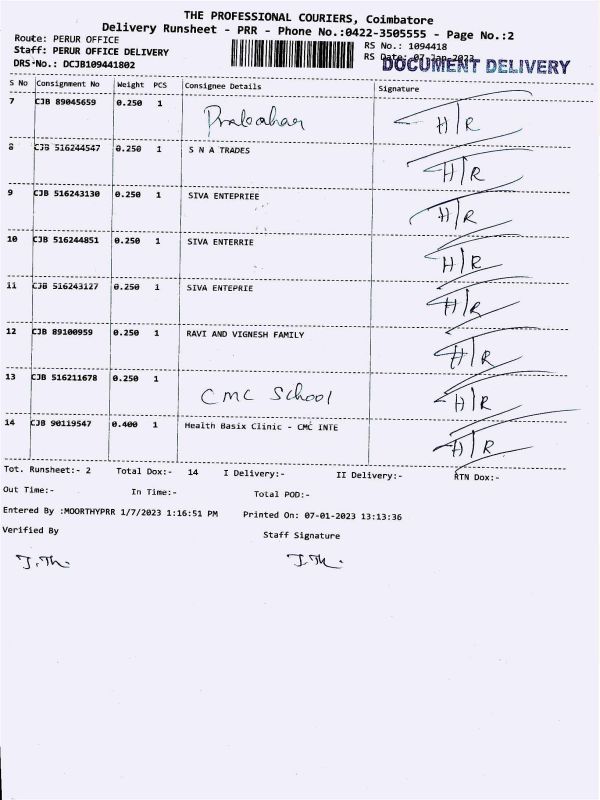 THE PROFESSIONAL COURIERS, Coimbatore
Delivery Runsheet - PRR - Phone No.:0422-3505555 - Page No.:2
Route: PERUR OFFICE
Staff: PERUR OFFICE DELIVERY
DRS-No.: DCJB109441802
RS No.: 1094418
RS Date: 07-Jan-2023
DOCUMENT DELIVERY
S No Consignment No Weight PCS Consignee Details Signature
7 CJB 89045659 0.250 1 H/R
8 CJB 516244547 0.250 1 S N A TRADES H/R
9 CJB 516243130 0.250 1 SIVA ENTEPRIEE H/R
10 CJB 516244851 0.250 1 SIVA ENTERRIE H/R
11 CJB 516243127 0.250 1 SIVA ENTEPRIE H/R
12 CJB 89100959 0.250 1 RAVI AND VIGNESH FAMILY H/R
13 CJB 516211678 0.250 1 CMC School H/R
14 CJB 90119547 0.400 1 Health Basix Clinic - CMC INTE H/R
Tot. Runsheet:- 2 Total Dox:- 14 I Delivery:- II Delivery:- RTN Dox:-
Out Time:- In Time:- Total POD:-
Entered By :MOORTHYPRR 1/7/2023 1:16:51 PM Printed On: 07-01-2023 13:13:36
Verified By Staff Signature